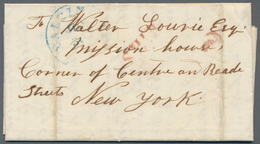 To Walter Lowrie Esq
Mission house
Corner of Centre an Reade
Streets
New York.